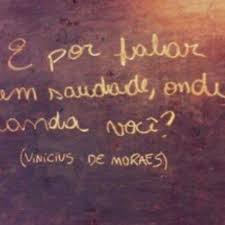 E por falar
em saudade, onde
anda você?
(VINICIUS DE MORAES)